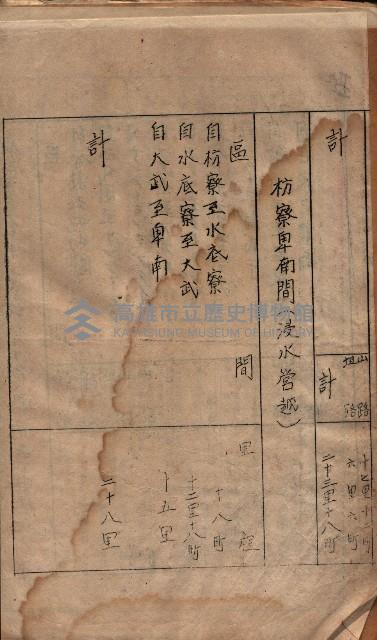 計
山路
坦路
計
十七里十二町
六里六町
二十三里十八町
枋寮卑南間(浸水營越)
區間
里程
自枋寮至水底寮
十八町
自水底寮至大武
十二里十八町
自大武至卑南
十五里
計
二十八里
高雄市立歷史博物館
KAOHSIUNG MUSEUM OF HISTORY